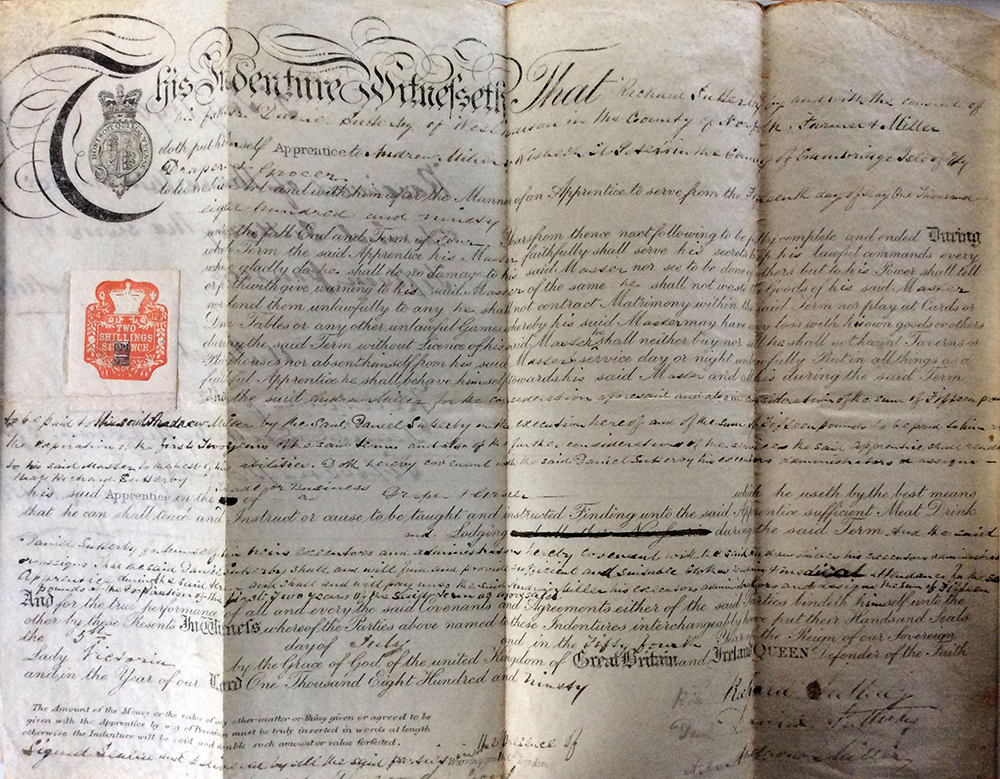 This Indenture Witnesseth That Richard Sutterby by and with the consent of
his father Daniel Sutterby of West in the County of Norfolk Farmer & Miller
doth put himself Apprentice to Andrew Miller of Wisbech St Peters in the County of Cambridge Isle of Ely
Draper & Grocer
to learn his Art and with him after the Manner of an Apprentice to serve from the day of May One Thousand
eight hundred and ninety
unto the full End and Term of Four Years from thence next following to be fully complete and ended During
which Term the said Apprentice his Master faithfully shall serve his secrets keep his lawful commands every
where gladly do he shall do no damage to his said Master nor see to be done of others but to his Power shall tell
or forthwith give warning to his said Master of the same he shall not waste the Goods of his said Master
nor lend them unlawfully to any he shall not contract Matrimony within the said Term nor play at Cards or
Dice Tables or any other unlawful Games whereby his said Master may have any loss with his own goods or others
during the said Term without Licence of his said Master he shall neither buy nor sell he shall not haunt Taverns or
Playhouses nor absent himself from his said Master's service day or night unlawfully But in all things as a
faithful Apprentice he shall behave himself towards his said Master and all his during the said Term
And the said Andrew Miller for the consideration aforesaid and also in consideration of the sum of Fifteen pounds
TWO
SHILLINGS
SIXPENCE
to be paid to the said Andrew Miller by the said Daniel Sutterby on the execution hereof and of the sum of Fifteen pounds to be paid to him at
the expiration of the first Two years of the said term and also of the further consideration of the services the said apprentice shall render
to his said Master to the best of his abilities. Doth hereby covenant with the said Daniel Sutterby his executors administrators & assigns
that Richard Sutterby
his said Apprentice in the Trade or Business of a Draper & Grocer which he useth by the best means
that he can shall teach and Instruct or cause to be taught and instructed Finding unto the said Apprentice sufficient Meat Drink
and Lodging during the said Term And the said
Daniel Sutterby for himself his heirs executors and administrators hereby covenant with the said Andrew Miller his executors administrators
or assigns that he the said Daniel Sutterby shall and will find and provide sufficient and suitable clothes and medical attendance for the said
Apprentice during the said term and shall and will pay unto the said Andrew Miller his executors administrators and assigns the sum of Fifteen
Pounds at the expiration of the first Two years of the said term as aforesaid
And for the true performance of all and every the said Covenants and Agreements either of the said Parties bindeth himself unto the
other by these Presents In Witness whereof the Parties above named to these Indentures interchangeably have put their Hands and Seals
the 5th day of July and in the Fifty fourth Year of the Reign of our Sovereign
Lady Victoria by the Grace of God of the united Kingdom of Great Britain and Ireland QUEEN Defender of the Faith
and in the Year of our Lord One Thousand Eight Hundred and Ninety
Richard Sutterby
Daniel Sutterby
Andrew Miller
The Amount of the Money or the value of any other matter or thing given or agreed to be
given with the Apprentice by way of Premium must be truly inserted in words at length
otherwise the Indenture will be void and double such amount or value forfeited.
Signed Sealed and Delivered by all the said parties in the presence of